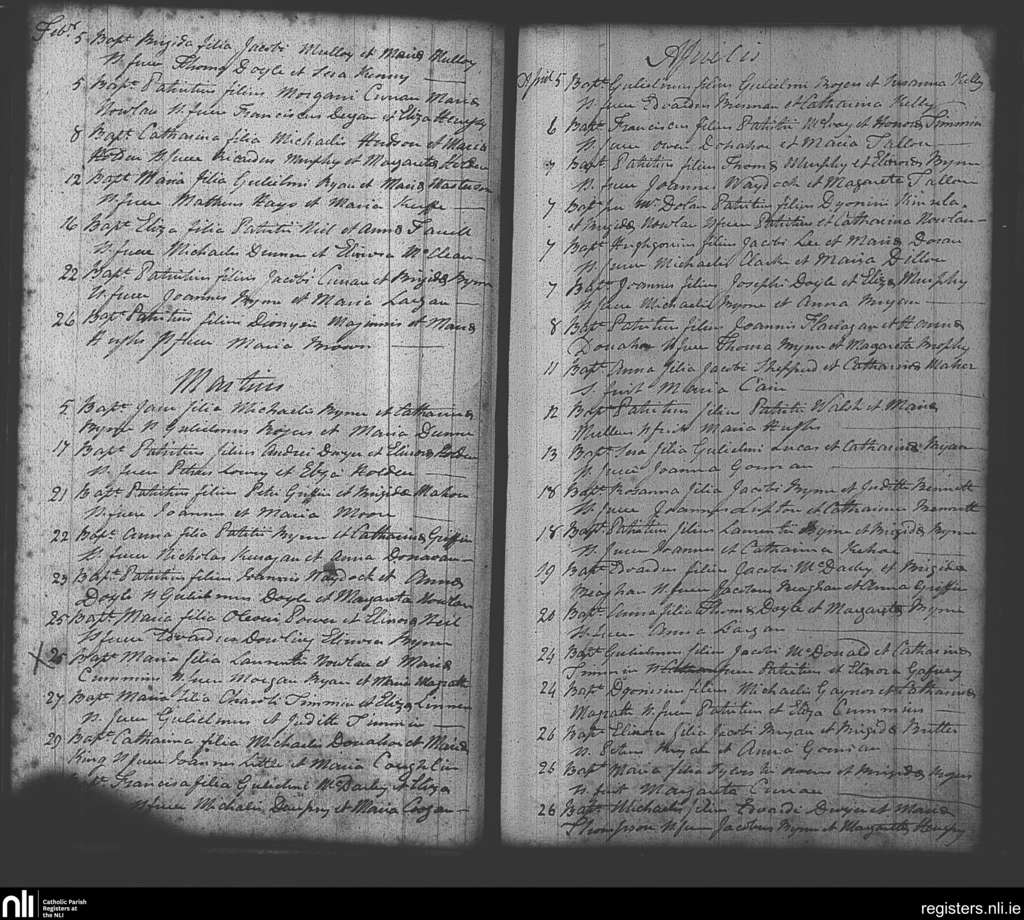 Febr. 5 Bapt. Brigida filia Jacobi Mulloy et Maria Mulloy
N. fuere Thoms Doyle et Kenny
5 Bapt. Patritius filius Morgani Curran Maria
Nowlan N. fuere Franciscus et Eliza
8 Bapt. Catharina filia Michaelis Hudson et Maria
Holden N. fuere Ricardus Murphy et Margareta Holden
12 Bapt. Maria filia Gulielmi Ryan et Maria Masterson
N. fuere Mathew Hays et Maria
16 Bapt. Eliza filia Patritii Neil et Anna Farrell
N. fuere Michaelis Dunn et Elinora McClean
22 Bapt. Patritius filius Jacobi Curran et Brigida Byrne
N. fuere Joannes Byrne et Maria Largan
26 Bapt. Patritius filius Dionysii Maginnis et Maria
Hughs N fuere Maria Brown
Martius
5 Bapt. Jane filia Michaelis Byrne et Catharina
Byrne N. Gulielmus Rogers et Maria Dunne
17 Bapt. Patritius filius Andrei Dwyer et Elinora Holden
N. fuere Petrus Lowry et Eliza Holden
21 Bapt. Patritius filius Petri Griffin et Brigida Mahon
N. fuere Joannes et Maria Moore
22 Bapt. Anna filia Patritii Byrne et Catharina Griffin
N. fuere Nicholas et Anna Donavan
23 Bapt. Patritius filius Joannis Waydock et Anna
Doyle N Gulielmus Doyle et Margareta Nowlan
25 Bapt. Maria filia Oliveri Power et Elinora Neil
N. fuere Edvardus Dowling Elinora Byrne
X 25 Bapt. Maria filia Laurentii Nowlan et Maria
Cummins N. fuere Morgan Ryan et Maria Magrath
27 Bapt. Maria filia Charoli Timmin et Eliza Linnen
N. fuere Gulielmus et Judith Timmin
29 Bapt. Catharina filia Michaelis Donahoe et Maria
King N fuere Joannes Little et Maria Coughlin
Francisca filia Gulielmi McDarby et Eliza
N fuere Michalis Dempsy et Maria Cogan
Aprilis
April 5 Bapt. Gulielmus filius Gulielmi Rogers et Susanna Kelly
N. fuere Edvardus Brennan et Catharina Kelly
6 Bapt. Franciscus filius Patritii McEvoy et Honora Timmin
N. fuere Owen Donahoe et Maria Tallon
7 Bapt. Patritius filius Thoms Murphy et Elinora Byrne
N. fuere Joannes Waydock et Magareta Tallon
7 Bapt. per Mr. Dolan Patritius filius Dyonisii Kinsela
et Brigida Nowlan N fuere Patritius et Catharina Nowlan
7 Bapt. filius Jacobi Lee et Maria Doran
N. fuere Michaelis Clarke et Maria Dillon
7 Bapt. Joannes filius Josephi Doyle et Eliza Murphy
N. fuere Michaelis Byrne et Anna Bryan
8 Bapt. Patritius filius Joannis Flanagan et Hanna
Donahoe N fuere Thoma Byrne et Magareta Brophy
11 Bapt. Anna filia Jacobi Sheppard et Catharina Maher
S. fuit Maria Cain
12 Bapt. Patritius filius Patritii Walsh et Maria
Mullen N fuit Maria Hughs
13 Bapt. filia Gulielmi Lucas et Catharina Bryan
N. fuere Joanna Gorman
18 Bapt. Rosanna filia Jacobi Byrne et Judith Bennett
N. fuere Joannes et Catharina Bennett
18 Bapt. Patritius filius Laurentii Byrne et Brigida Byrne
N. fuere Joannes et Catharina Kehoe
19 Bapt. Edvardus filius Jacobi McDarby et Brigida
Meaghan N. fuere Jacobus Meaghan et Anna Griffin
20 Bapt. Anna filia Thoms Doyle et Margareta Byrne
N. fuere Anna Largan
24 Bapt. Gulielmus filius Jacobi McDonald et Catharina
Timmin N fuere Patritius et Elinora Gafney
24 Bapt. Dyonisius filius Michaelis Gaynor et Catharina
Magrath N. fuere Patritius et Eliza Cummins
26 Bapt. Elinora filia Jacobi Bryan et Brigida Butler
N. Petrus Bryan et Anna Gorman
26 Bapt. Maria filia et Brigida Rogers
N. fuit Margareta Curran
26 Bapt. Michaelis filius Edvardi Dwyer et Maria
Thompson N. fuere Jacobus Byrne et Margareta
nli Catholic Parish
Registers at
the NLI
registers.nli.ie